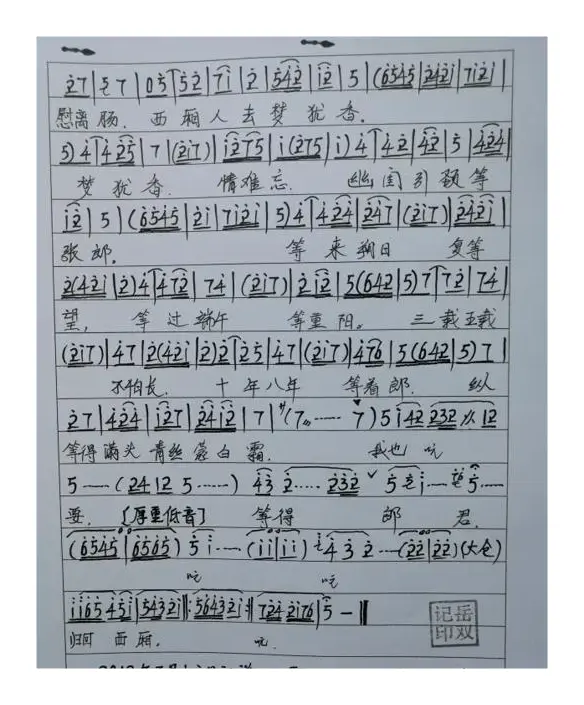 2 7 | 5 7 | 0 5 | 5 2 | 7 i | 2 | 5 4 2 | i 2 | 5 | (6 5 4 5 | 2 4 2 i | 7 i 2 i |
慰离肠. 西厢人去梦犹香.
5) 4 | 4 2 5 | 7 | (2 i 7) | i 2 7 5 | i (2 7 5 | i) 4 | 4 2 | 4 2 | 5 | 4 2 4 |
梦犹香. 情难忘. 幽闺引颈等
i 2 | 5 | (6 5 4 5 | 2 i | 7 i 2 i | 5) 4 | 4 2 4 | 2 4 7 | (2 i 7) | 2 4 2 i |
张郎. 等来朔日 复等
2 (4 2 i | 2) 4 | 4 7 2 | 7 4 | (2 i 7) | 2 i 2 | 5 (6 4 2 | 5) 7 | 7 2 | 7 4 |
望, 等过端午 等重阳。 三载五载
(2 i 7) | 4 7 | 2 (4 2 i | 2) 2 | 2 5 | 4 7 | (2 i 7) | 4 7 6 | 5 (6 4 2 | 5) 7 |
不怕长. 十年八年 等着郎. 纵
2 7 | 4 2 4 | i 2 7 | 2 4 i 2 | 7 | (7 …… 7) 5 i 4 2 2 3 2 i 2
等得满头青丝蒙白霜. 我也 吭
5 —— (2 4 1 2 5 ……) 4 3 2 …… 2 3 2 5 i —— 5 ……
要. [厚重低音] 等得 郎 君.
(6 5 4 5 | 6 5 6 5) 5 i …… (i i | i i) 4 3 2 …… (2 2 | 2 2) (大仓)
吭 吭
i i 6 5 4 5 i | 5 4 3 2 i ‖: 5 6 4 3 2 i :‖ 7 2 4 2 i 7 6 | 5 — ‖
归可 西厢. 吭.
岳双记印